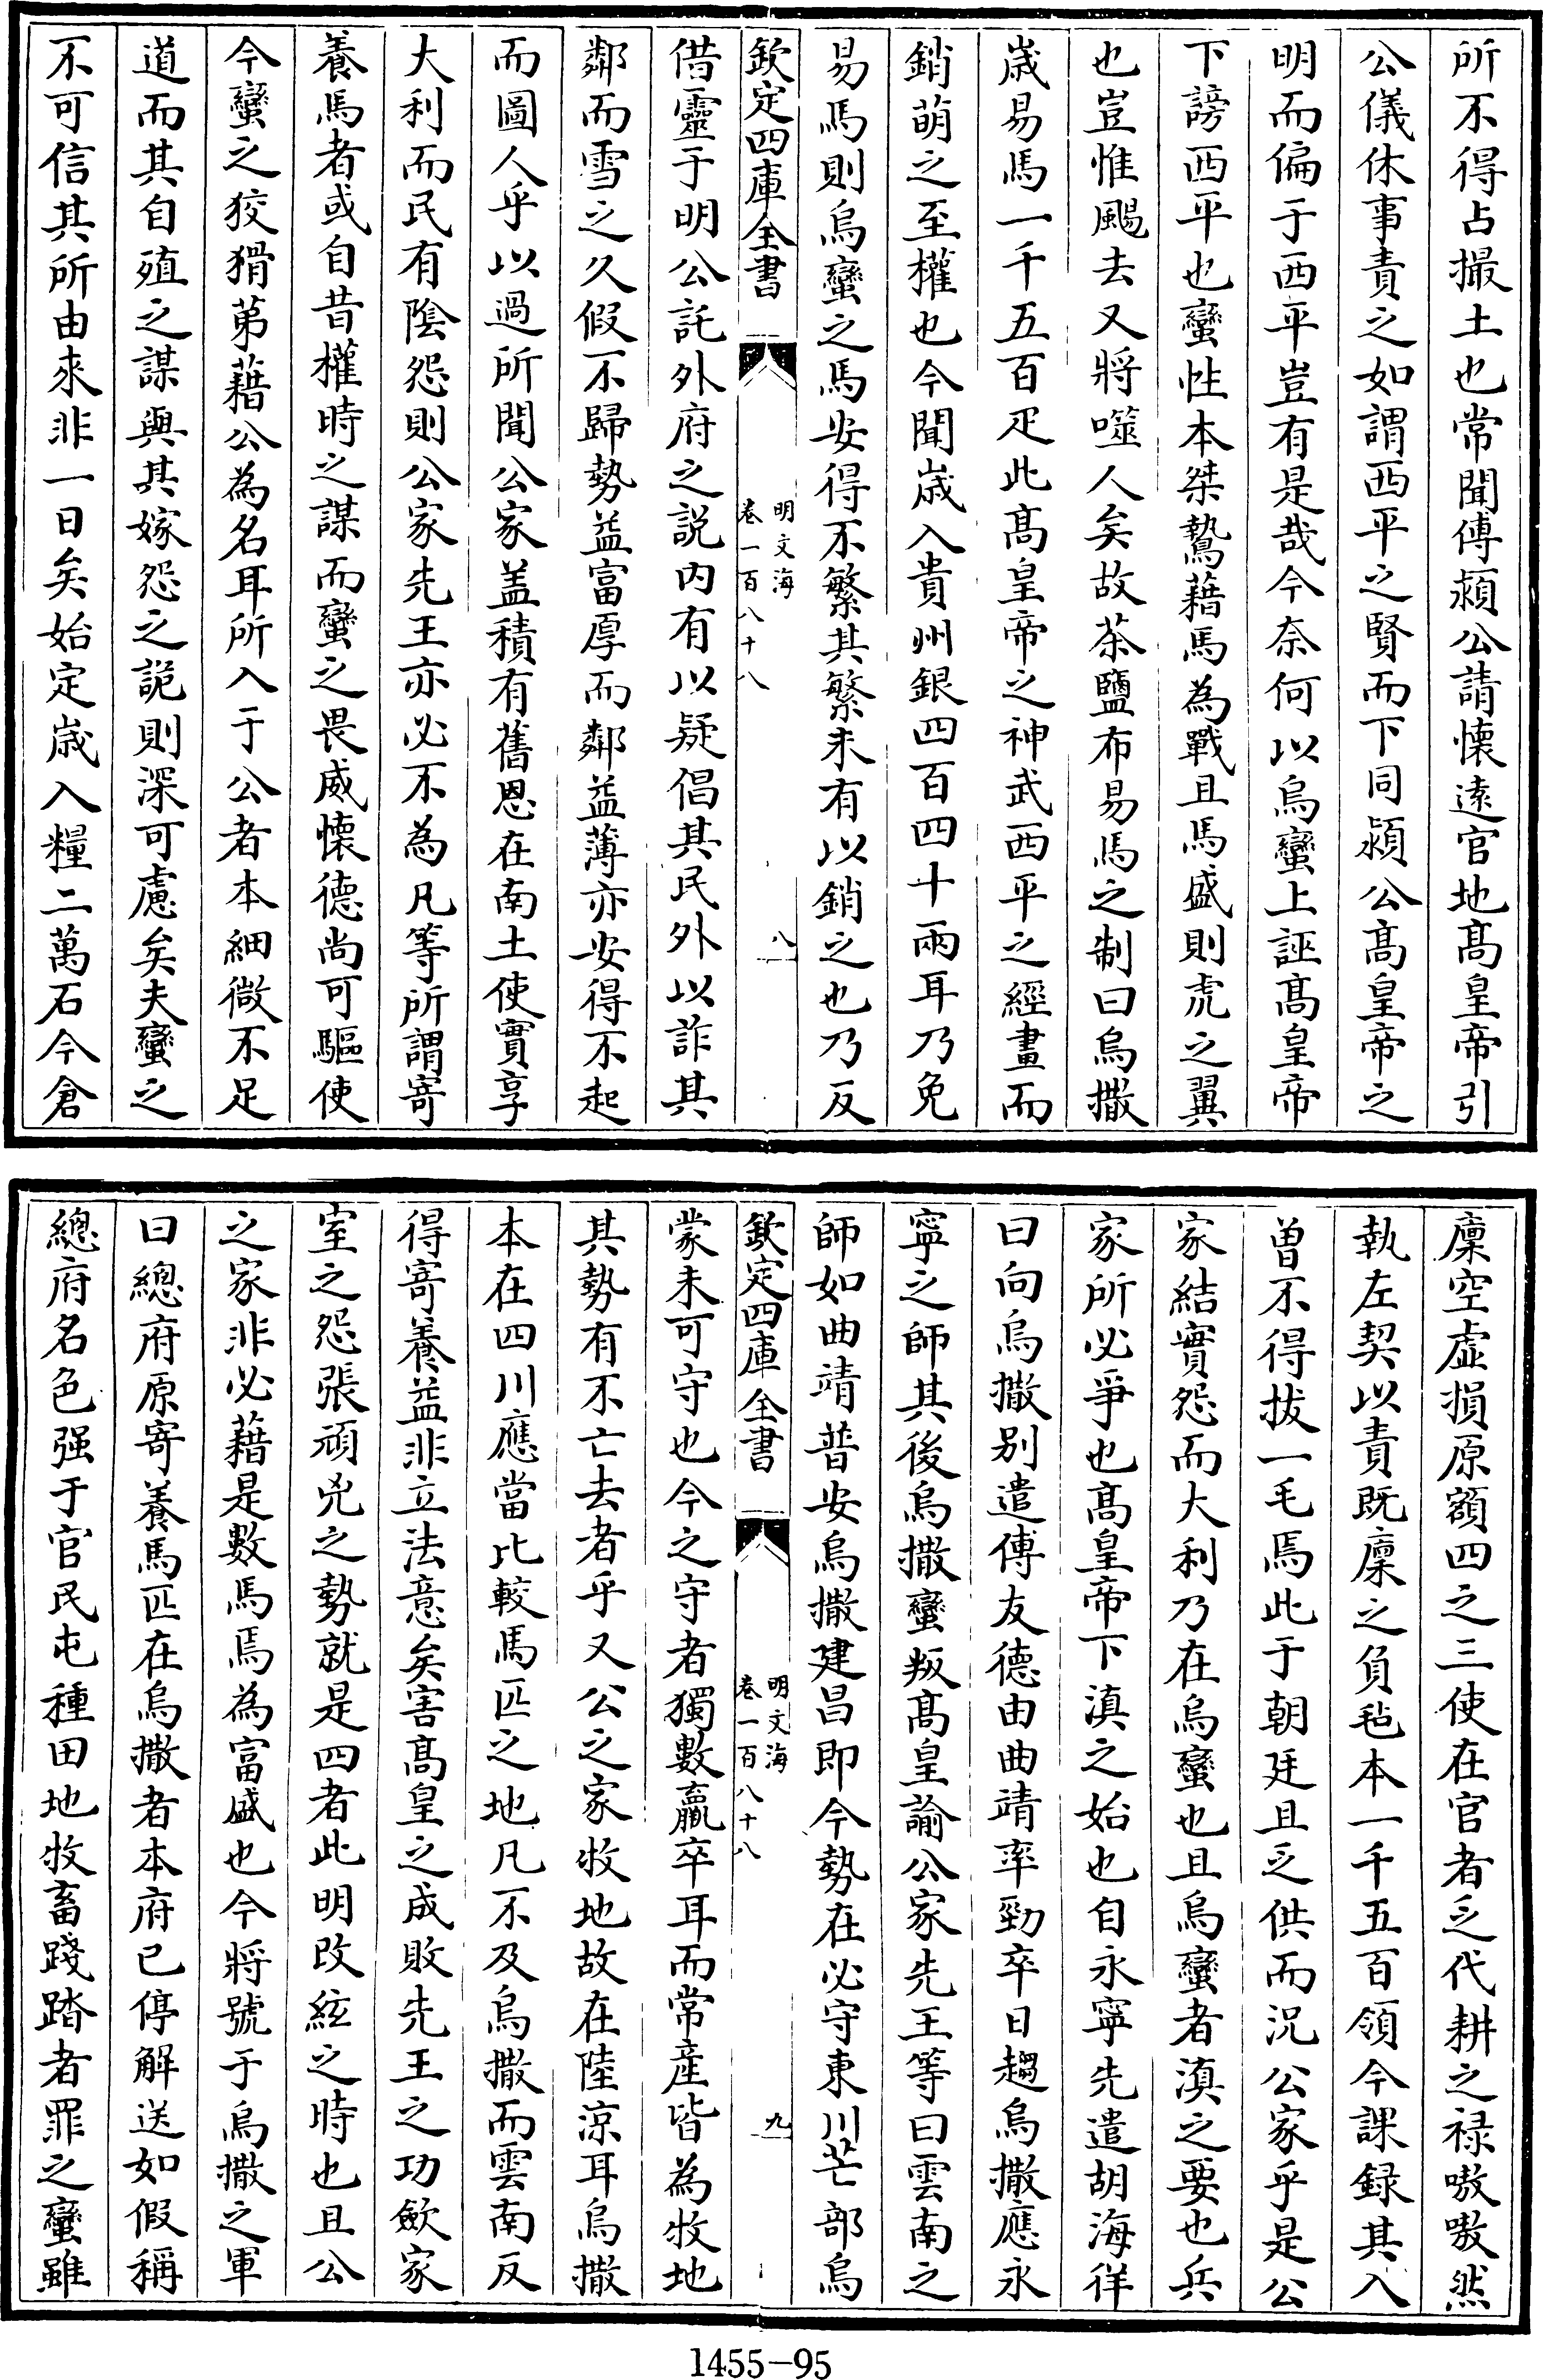 所不得占撮土也常聞傅潁公請懷遠官地髙皇帝引
公儀休事責之如謂西平之賢而下同潁公髙皇帝之
明而偏于西平豈有是哉今奈何以烏蠻上誣髙皇帝
下謗西平也蠻性本桀驁藉馬為戰且馬盛則虎之翼
也豈惟颺去又將噬人矣故茶鹽布易馬之制曰烏撒
嵗易馬一千五百疋此髙皇帝之神武西平之經畫而
銷萌之至權也今聞嵗入貴州銀四百四十兩耳乃免
易馬則烏蠻之馬安得不繁其繁未有以銷之也乃反
欽定四庫全書
明文海
卷一百八十八
八
借靈于明公託外府之説内有以疑倡其民外以詐其
鄰而雪之久假不歸勢益富厚而鄰益薄亦安得不起
而圖人乎以過所聞公家盖積有舊恩在南土使實享
大利而民有隂怨則公家先王亦必不為凡等所謂寄
養馬者或自昔權時之謀而蠻之畏威懐德尚可驅使
今蠻之狡猾苐藉公為名耳所入于公者本細微不足
道而其自殖之謀與其嫁怨之詭則深可慮矣夫蠻之
不可信其所由來非一日矣始定嵗入糧二萬石今倉
廩空虚損原額四之三使在官者乏代耕之禄嗷嗷然
執左契以責既廩之負毡本一千五百領今課録其入
曽不得拔一毛焉此于朝廷且乏供而况公家乎是公
家結實怨而大利乃在烏蠻也且烏蠻者滇之要也兵
家所必爭也髙皇帝下滇之始也自永寧先遣胡海徉
曰向烏撒别遣傅友德由曲靖率勁卒日趨烏撒應永
寧之師其後烏撒蠻叛髙皇諭公家先王等曰雲南之
師如曲靖普安烏撒建昌即今勢在必守東川芒部烏
欽定四庫全書
明文海
卷一百八十八
九
蒙未可守也今之守者獨數羸卒耳而常産皆為牧地
其勢有不亡去者乎又公之家牧地故在陸凉耳烏撒
本在四川應當比較馬匹之地凡不及烏撒而雲南反
得寄養益非立法意矣害髙皇之成敗先王之功歛家
室之怨張頑兇之勢就是四者此明改絃之時也且公
之家非必藉是數馬焉為富盛也今將號于烏撒之軍
曰總府原寄養馬匹在烏撒者本府已停解送如假稱
總府名色强于官民屯種田地牧畜踐踏者罪之蠻雖
1455-95